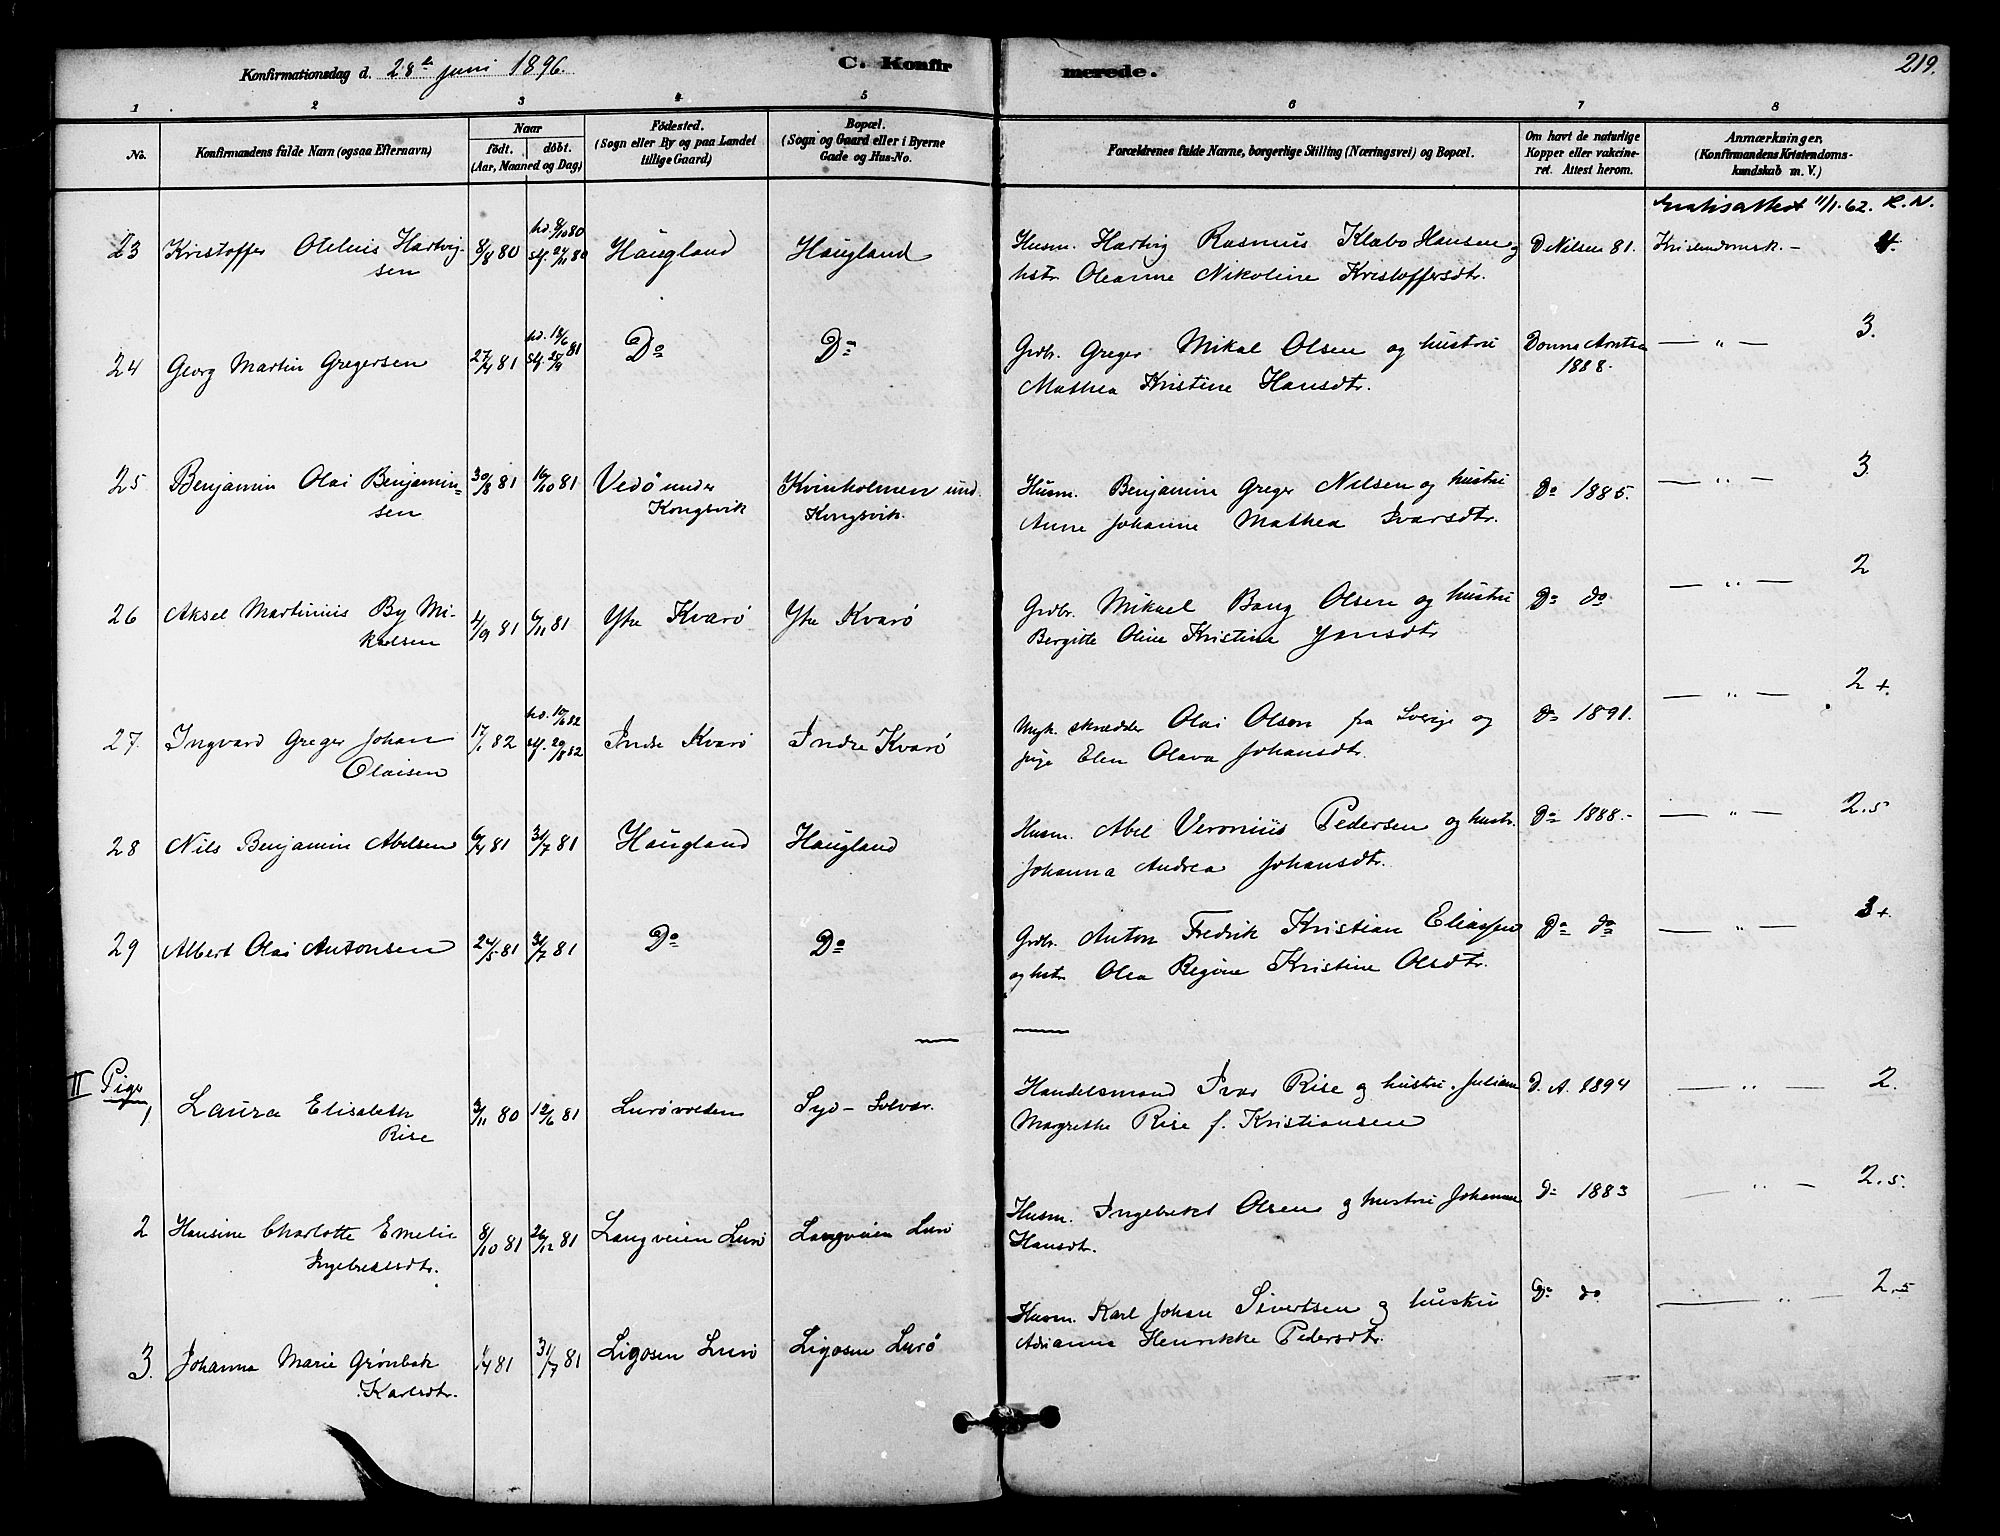 Konfirmationsdag d. 28de Juni 1896.
C. Konfirmerede.
219.
1 2 3 4 5 6 7 8
No.
Konfirmandens fulde Navn (ogsaa Efternavn)
Naar
födt. döbt.
(Aar, Maaned og Dag)
Födested.
(Sogn eller By og paa Landet
tillige Gaard)
Bopæl.
(Sogn og Gaard eller i Byerne
Gade og Hus-No.
Forældrenes fulde Navne, borgerlige Stilling (Næringsvei) og Bopæl.
Om havt de naturlige
Kopper eller vakcine-
ret. Attest herom.
Anmærkninger.
(Konfirmandens Kristendoms-
kundskab m. V.)
Gratisattest 11/1. 62. R. N.
23 Kristoffer Olelius Hartvig-
sen
8/8 80
hd. 9/10 80
stf. 27/11 80
Haugland
Haugland
Husm. Hartvig Rasmus Klæbo Hansen og
hstr. Oleanne Nikoline Kristoffersdtr.
D Nilsen 81.
Kristendomsk. — 4.
24 Georg Martin Gregersen
27/4 81
hd. 18/6
stf. 25/9 81
Do
Do
Grdbr. Greger Mikal Olsen og hustru
Mathea Kristine Hansdtr.
Donna Arntsen
1888.
— " — 3.
25 Benjamin Olai Benjamin-
sen
30/8 81
16/10 81
Vedö under
Kongsvik
Kvinholmen und.
Kongsvik.
Husm. Benjamin Greger Nilsen og hustru
Anne Johanne Mathea Ivarsdtr.
Do 1885.
— " — 3
26 Aksel Martinius By Mi-
kalsen
4/9 81
6/11 81
Ytre Kvarö
Ytre Kvarö
Grdbr. Mikael Bang Olsen og hustru
Bergitte Oline Kristine Jensdtr
Do do
— " — 2
27. Ingvard Greger Johan
Olaisen
17/1 82
hd. 10/6 82
stf. 20/8 82
Indre Kvarö
Indre Kvarö
Ugk. skrædder Olai Olson fra Sverige og
pige Elen Olava Johansdtr.
do 1891.
— " — 2 +.
28 Nils Benjamin Abelsen
6/4 81
31/7 81
Haugland
Haugland
Husm. Abel Veronius Pedersen og hustr.
Johanna Andrea Johansdtr.
Do 1888.-
— " — 2.5
29 Albert Olai Antonsen
24/5 81
31/7 81
Do
Do
Grdbr. Anton Fredrik Kristian Eliassen
og hstr. Olea Regine Kristine Olsdtr.
Do do
— " — 3+
II Piger
1, Laura Elisabeth
Rise
3/11 80
12/6 81
Lurövolden
Syd-Solvær.
Handelsmand Ivar Rise og hustru Juliane
Margrethe Rise f. Kristiansen
D. A. 1894
— " — 2.
2 Hansine Charlotte Emelie
Ingebretsdtr.
8/10 81
26/12 81
Langveien Lurö
Langveien Lurö
Husm. Ingebrekt Olsen og hustru Johanne
Hansdtr.
Do 1883
— " — 2.5.
3. Johanna Marie Grönbek
Karlsdtr.
1/4 81
31/7 81
Ligosen Lurö
Ligosen Lurö
Husm. Karl Johan Sivertsen og hustru
Adrianna Henrikke Pedersdtr.
Do do
— " — 2.5